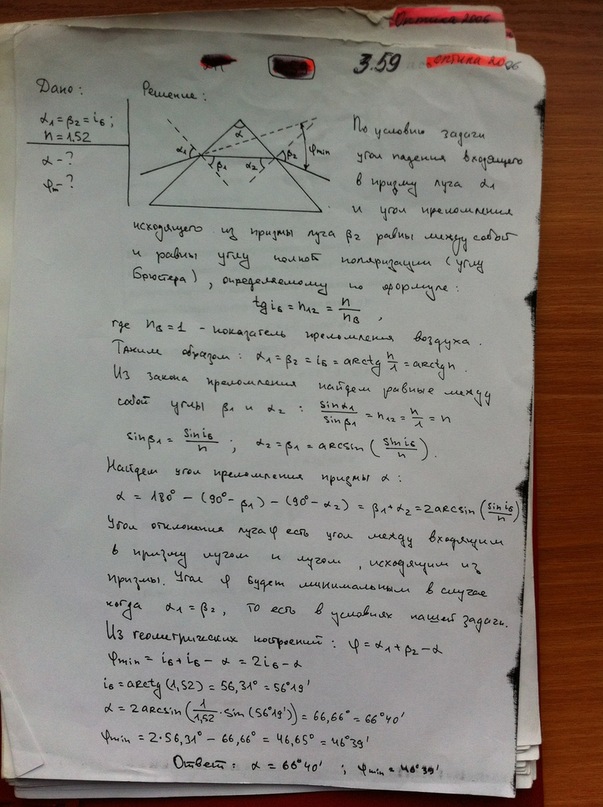 Оптика 2006
3.59 оптика 2006
Дано:
α₁ = β₂ = i_Б ;
n = 1.52
α - ?
φ_m - ?
Решение:
α
α₁ β₁ α₂ β₂ φmin
По условию задачи
угол падения входящего
в призму луча α₁
и угол преломления
исходящего из призмы луча β₂ равны между собой
и равны углу полной поляризации (углу
Брюстера), определяемому по формуле:
tg i_Б = n₁₂ = n/n_В ,
где n_В = 1 - показатель преломления воздуха.
Таким образом: α₁ = β₂ = i_Б = arctg n/1 = arctg n.
Из закона преломления найдем равные между
собой углы β₁ и α₂ : sinα₁/sinβ₁ = n₁₂ = n/1 = n
sinβ₁ = sin i_Б/n ; α₂ = β₁ = arcsin (sin i_Б/n).
Найдем угол преломления призмы α:
α = 180° - (90° - β₁) - (90° - α₂) = β₁ + α₂ = 2arcsin (sin i_Б/n)
Угол отклонения луча φ есть угол между входящим
в призму лучом и лучом, исходящим из
призмы. Угол φ будет минимальным в случае
когда α₁ = β₂, то есть в условиях нашей задачи.
Из геометрических построений: φ = α₁ + β₂ - α
φmin = i_Б + i_Б - α = 2i_Б - α
i_Б = arctg (1,52) = 56,31° = 56°19'
α = 2arcsin (1/1,52 · sin (56°19')) = 66,66° = 66°40'
φmin = 2·56,31° - 66,66° = 46,65° = 46°39'
Ответ: α = 66°40' ; φmin = 46°39'